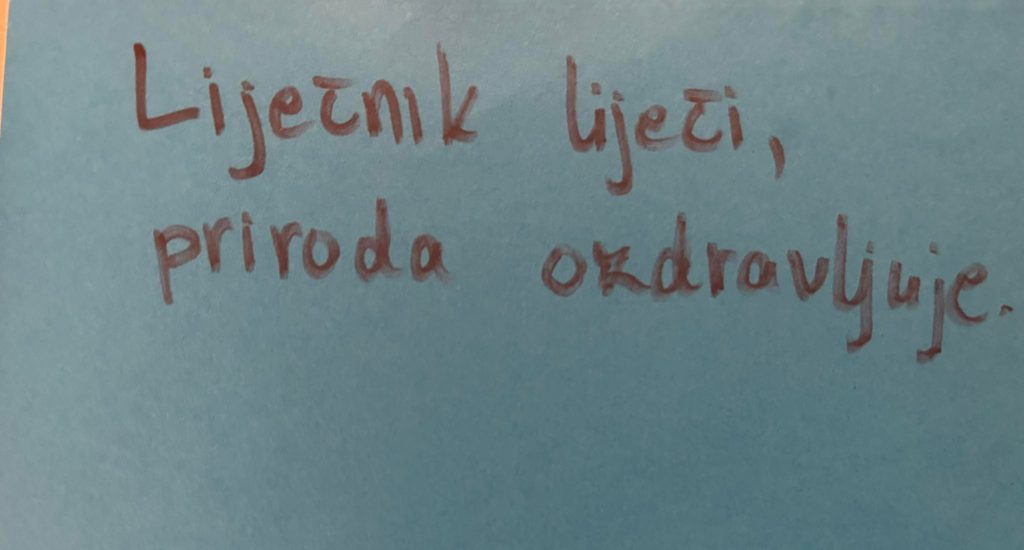 Liječnik liječi,
priroda ozdravljuje.